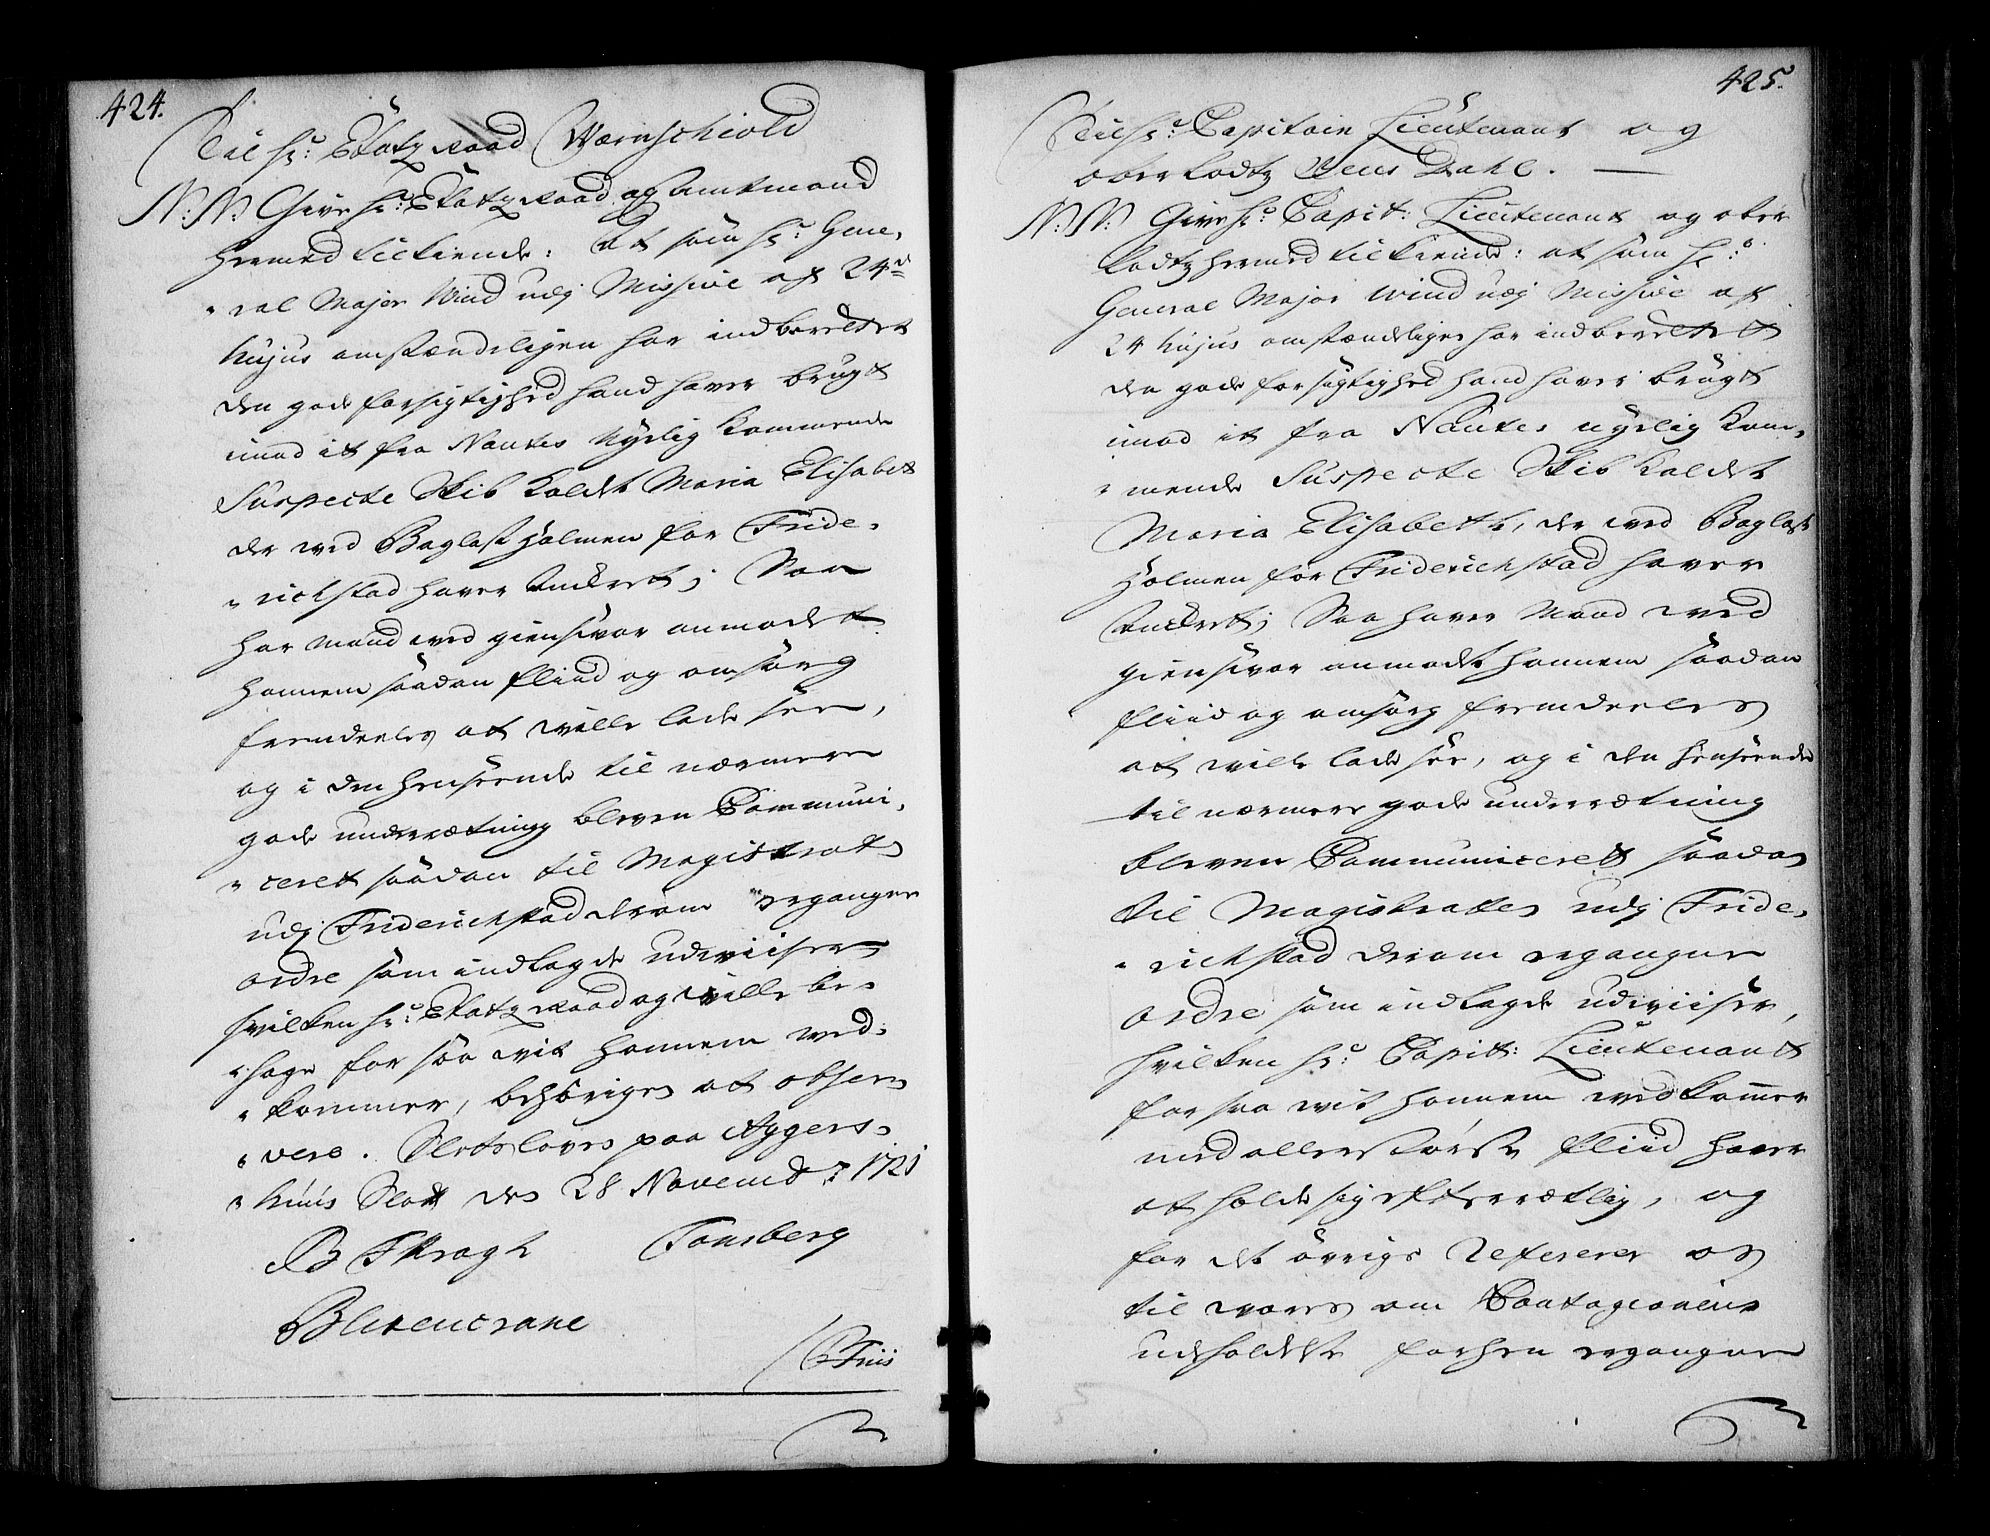 424.
Till Hr: Etatz Raad Wærnschiold
N: N: Give Hr: Etatz Raad og Amtmand
hermed tilkiende: At som Hr: Gene,
"ral Major Wind udj Missive af 24de
hujus omstændeligen har indberettet
den gode forsigtighed hand haver brugt
imod it fra Nantes nyelig kommende
Suspecte Skib kaldet Maria Elisabet
der ved Baglast Holmen for Fride,
"richstad haver Anckret; Saa
har Mand ved giensvar anmodet
hannem saadan fliid og omsorg
fremdeeles at wille lade see,
og i den henseende til nærmere
gode underrætning bleven Communi,
"ceret saadan til Magistrate
udj Friderichstad derom ergangne
ordre som indlagde udviiser
hvilken Hr: Etatz Raad og wille be,
"hage for saa wit hannem ved,
"kommer, behöriges at obser,
"vere. Slotsloven paa Aggers,
"huus Slott den 28 Novembr 1721
B T Kragh Tonsberg
Blixencrone
/ C Friis
425.
Till Hr: Capitain Lieutenant og
ober Lodtz Jens Dahl.
N: N: Give Hr: Capit: Lieutenant og ober
Lodtz hermed tilkiende: at som Hr:
General Major Wind udj Missive af
24 hujus omstændeligen har indberettet
den gode forsigtighed hand haver brugt
imod it fra Nantes nyelig kom,
"mende Suspecte Skib kaldet
Maria Elisabeth, der ved Baglast
Holmen for Friderichstad haver
Anckret; Saa haver Mand ved
giensvar anmodt hannem saadan
fliid og omsorg fremdeeles
at wille lade see, og i den henseende
til nærmere gode underrætning
bleven Communiceret saadan
til Magistraten udj Fride,
"richstad derom ergangne
ordre som indlagde udviiser,
hvilken Hr: Capit: Lieutenant
for saa wit hannem vedkommer
med allerstörste fliid haver
at holde sig efterrætlig, og
for det övrige referer os
til vores om Contagionens
udeholdelse forhen ergangne